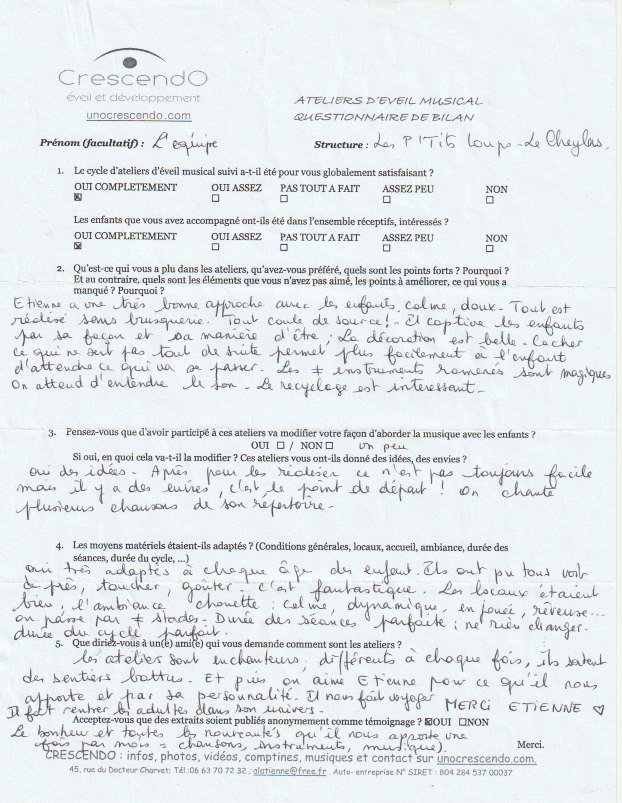 CrescendO
éveil et développement
unocrescendo.com
ATELIERS D'EVEIL MUSICAL
QUESTIONNAIRE DE BILAN
Prénom (facultatif) : L'équipe Structure : Les P'Tits Loups - Le Cheylas.
1. Le cycle d'ateliers d'éveil musical suivi a-t-il été pour vous globalement satisfaisant ?
OUI COMPLETEMENT OUI ASSEZ PAS TOUT A FAIT ASSEZ PEU NON
☒ ☐ ☐ ☐ ☐
Les enfants que vous avez accompagné ont-ils été dans l'ensemble réceptifs, intéressés ?
OUI COMPLETEMENT OUI ASSEZ PAS TOUT A FAIT ASSEZ PEU NON
☒ ☐ ☐ ☐ ☐
2. Qu'est-ce qui vous a plu dans les ateliers, qu'avez-vous préféré, quels sont les points forts ? Pourquoi ?
Et au contraire, quels sont les éléments que vous n'avez pas aimé, les points à améliorer, ce qui vous a
manqué ? Pourquoi ?
Etienne a une très bonne approche avec les enfants, calme, doux. Tout est
réalisé sans brusquerie. Tout coule de source ! - Il captive les enfants
par sa façon et sa manière d'être ; La décoration est belle - Cacher
ce qui ne sert pas tout de suite permet plus facilement à l'enfant
d'attendre ce qui va se passer. Les ≠ instruments ramenés sont magiques
On attend d'entendre le son - Le recyclage est interessant -
3. Pensez-vous que d'avoir participé à ces ateliers va modifier votre façon d'aborder la musique avec les enfants ?
OUI ☐ / NON ☐ un peu
Si oui, en quoi cela va-t-il la modifier ? Ces ateliers vous ont-ils donné des idées, des envies ?
oui des idées - Après pour les réaliser ce n'est pas toujours facile
mais il y a des envies, c'est le point de départ ! On chante
plusieurs chansons de son répertoire -
4. Les moyens matériels étaient-ils adaptés ? (Conditions générales, locaux, accueil, ambiance, durée des
séances, durée du cycle, ...)
oui très adaptés à chaque âge des enfant. Ils ont pu tous voir
de près, toucher, goûter - c'est fantastique. Les locaux étaient
bien, l'ambiance chouette : calme, dynamique, enjouée, rêveuse...
on passe par ≠ stades - Durée des séances parfaite ; ne rien changer -
durée du cycle parfait.
5. Que diriez-vous à un(e) ami(e) qui vous demande comment sont les ateliers ?
les atelier sont enchanteurs, différents à chaque fois, ils sortent
des sentiers battus. Et puis on aime Etienne pour ce qu'il nous
apporte et par sa personnalité. Il nous fait voyager
Il fait rentrer les adultes dans son univers - MERCI ETIENNE ♡
Acceptez-vous que des extraits soient publiés anonymement comme témoignage ? ☒OUI ☐NON
Le bonheur et toutes les nouveautés qu'il nous apporte une
fois par mois = chansons, instruments, musique). Merci.
CRESCENDO : infos, photos, vidéos, comptines, musiques et contact sur unocrescendo.com
45, rue du Docteur Charvet; Tél :06 63 70 72 32 ; alatienne@free.fr . Auto- entreprise N° SIRET : 804 284 537 00037